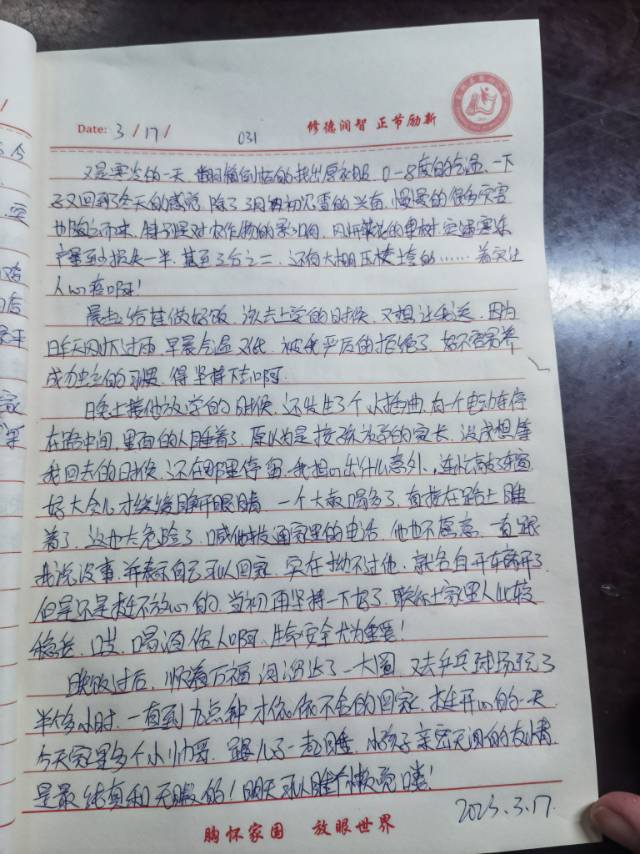 Date: 3/17/
031
修德润智 正节励新
又是寒冷的一天,翻箱倒柜的找出厚衣服,0-8度的气温,一下
子又回到了冬天的感觉,除了3月再初见雪的兴奋,慢慢的很多灾害
也随之而来,特别是对农作物的影响,风烟萧花的果树突遇寒冻
产量至少损失一半,甚至三分之二,还有大棚压垮塌的……着实让
人心疼啊!
晨起给娃做好饭,该去上学的时候,又想让我送,因为
昨天刚下过雨,早晨气温又低,被我严厉的拒绝了,好不容易养
成力的习惯,得坚持下去啊。
晚上接他放学的时候,还发生了个小插曲,有一个电动车停
在路中间,里面的人睡着了,原以为是接孩放学的家长,没成想等
我回去的时候,还在那里停留,我担心出什么意外,连忙敲了车窗
好大会儿才缓缓睁开眼睛,一个大叔喝多了,直接在路上睡
着了,这也太危险了,喊他接通家里的电话,他也不愿意,一直跟
我说没事,并表示自己可以回家,实在拗不过他,就各自开车离开了
但是还是挺不放心的,当初再坚持一下好了,联系上家里人比较
稳妥,哎,喝酒伤人啊,生命安全大为重要!
晚饭过后,顺着万福河溜达了一大圈,又去乒乓球场玩了
半个多小时,一直到九点钟才依依不舍的回家,挺开心的一天
今天家里多个小帅哥,跟儿子一起睡,小孩子亲密无间的友情
是最纯真和无暇的!明天可以睡个懒觉喽!
2023.3.17.
胸怀家国 放眼世界